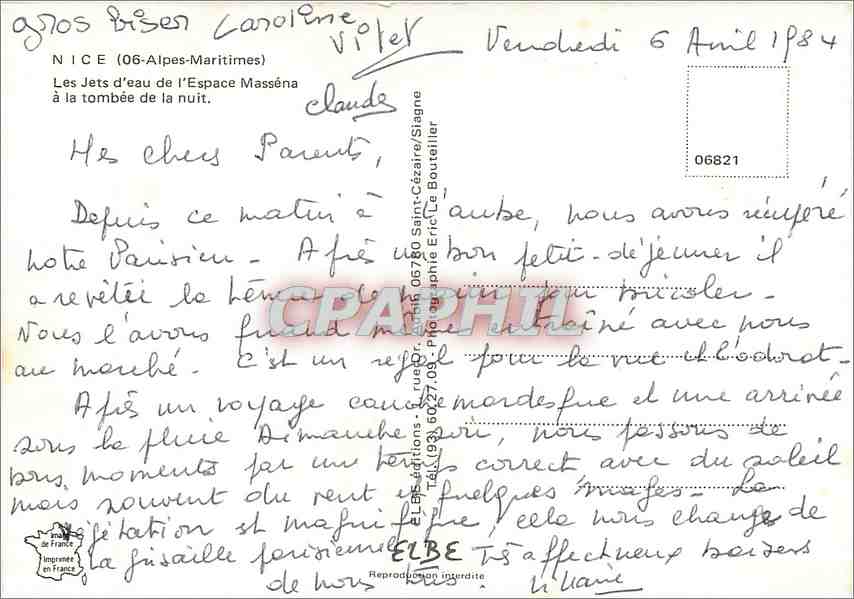 gros biser Caroline
Violet
Vendredi 6 Avril 1984
NICE (06-Alpes-Maritimes)
Les Jets d'eau de l'Espace Masséna
à la tombée de la nuit.
Claude
06821
Mes chers Parents,
Depuis ce matin à l'aube, nous avons récupéré
notre Parisien - Après un bon petit-déjeuner il
a revêtée la tenue de marin pour bricoler -
Nous l'avons quand même entraîné avec nous
au marché. C'est un régal pour la vue et l'odorat -
Après un voyage cauchemardesque et une arrivée
sous la pluie Dimanche soir, nous passons de
bons moments par un temps correct avec du soleil
mais souvent du vent et quelques nuages - La
végétation est magnifique, cela nous change de
la grisaille parisienne. Très affectueux baisers
de nous tous.
ELBE éditions - rue Dr. 06780 Saint-Cézaire/Siagne
Tél. (93) 60.27.09 - Photographie Eric Le Bouteiller
CPAPHIL
Image
de France
Imprimée
en France
ELBE
Reproduction interdite